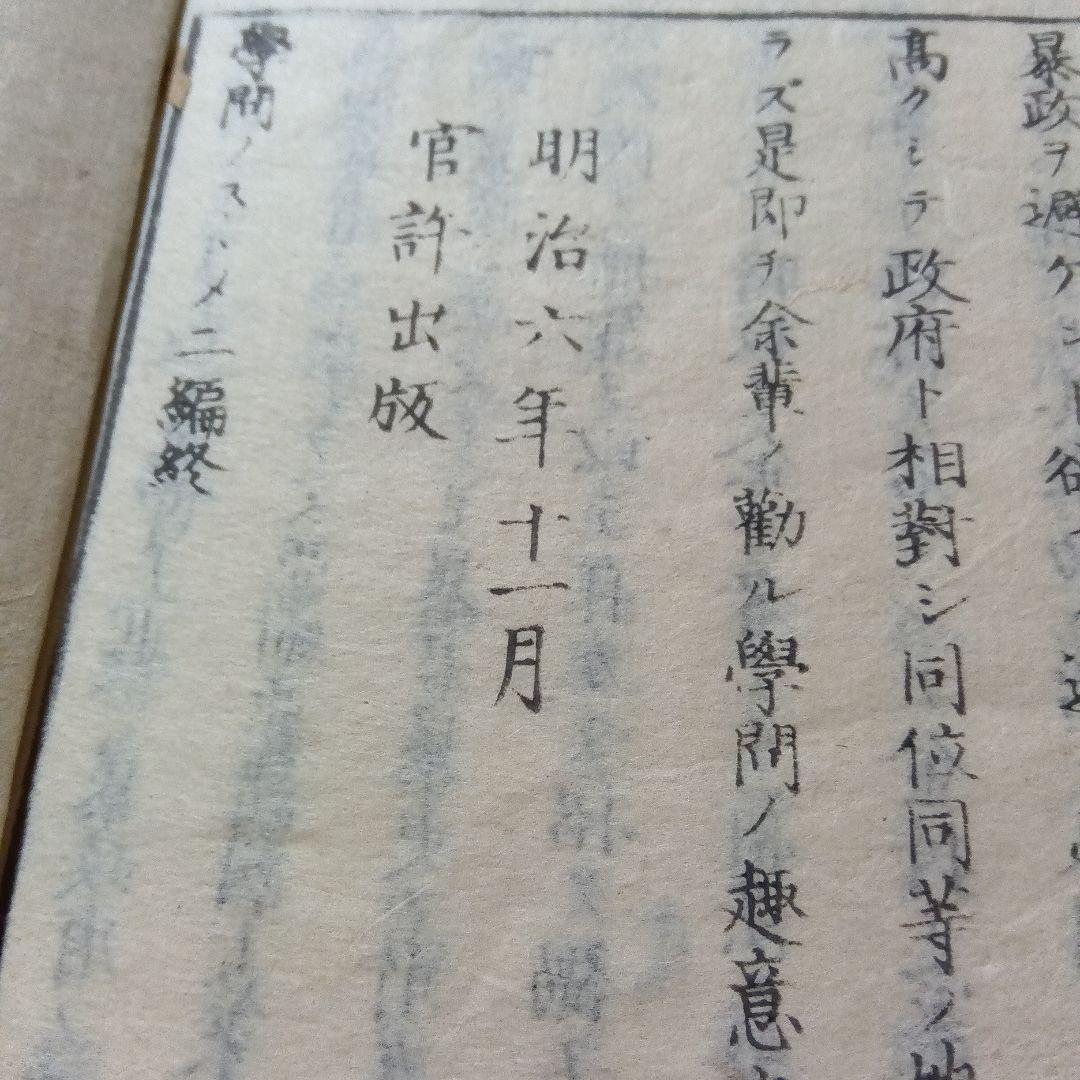 暴政ヲ避ケ
高クシテ政府ト相對シ同位同等ノ地
ラズ是即チ余輩ノ勸ル學問ノ趣意
明治六年十一月
官許出版
學問ノスヽメ二編終